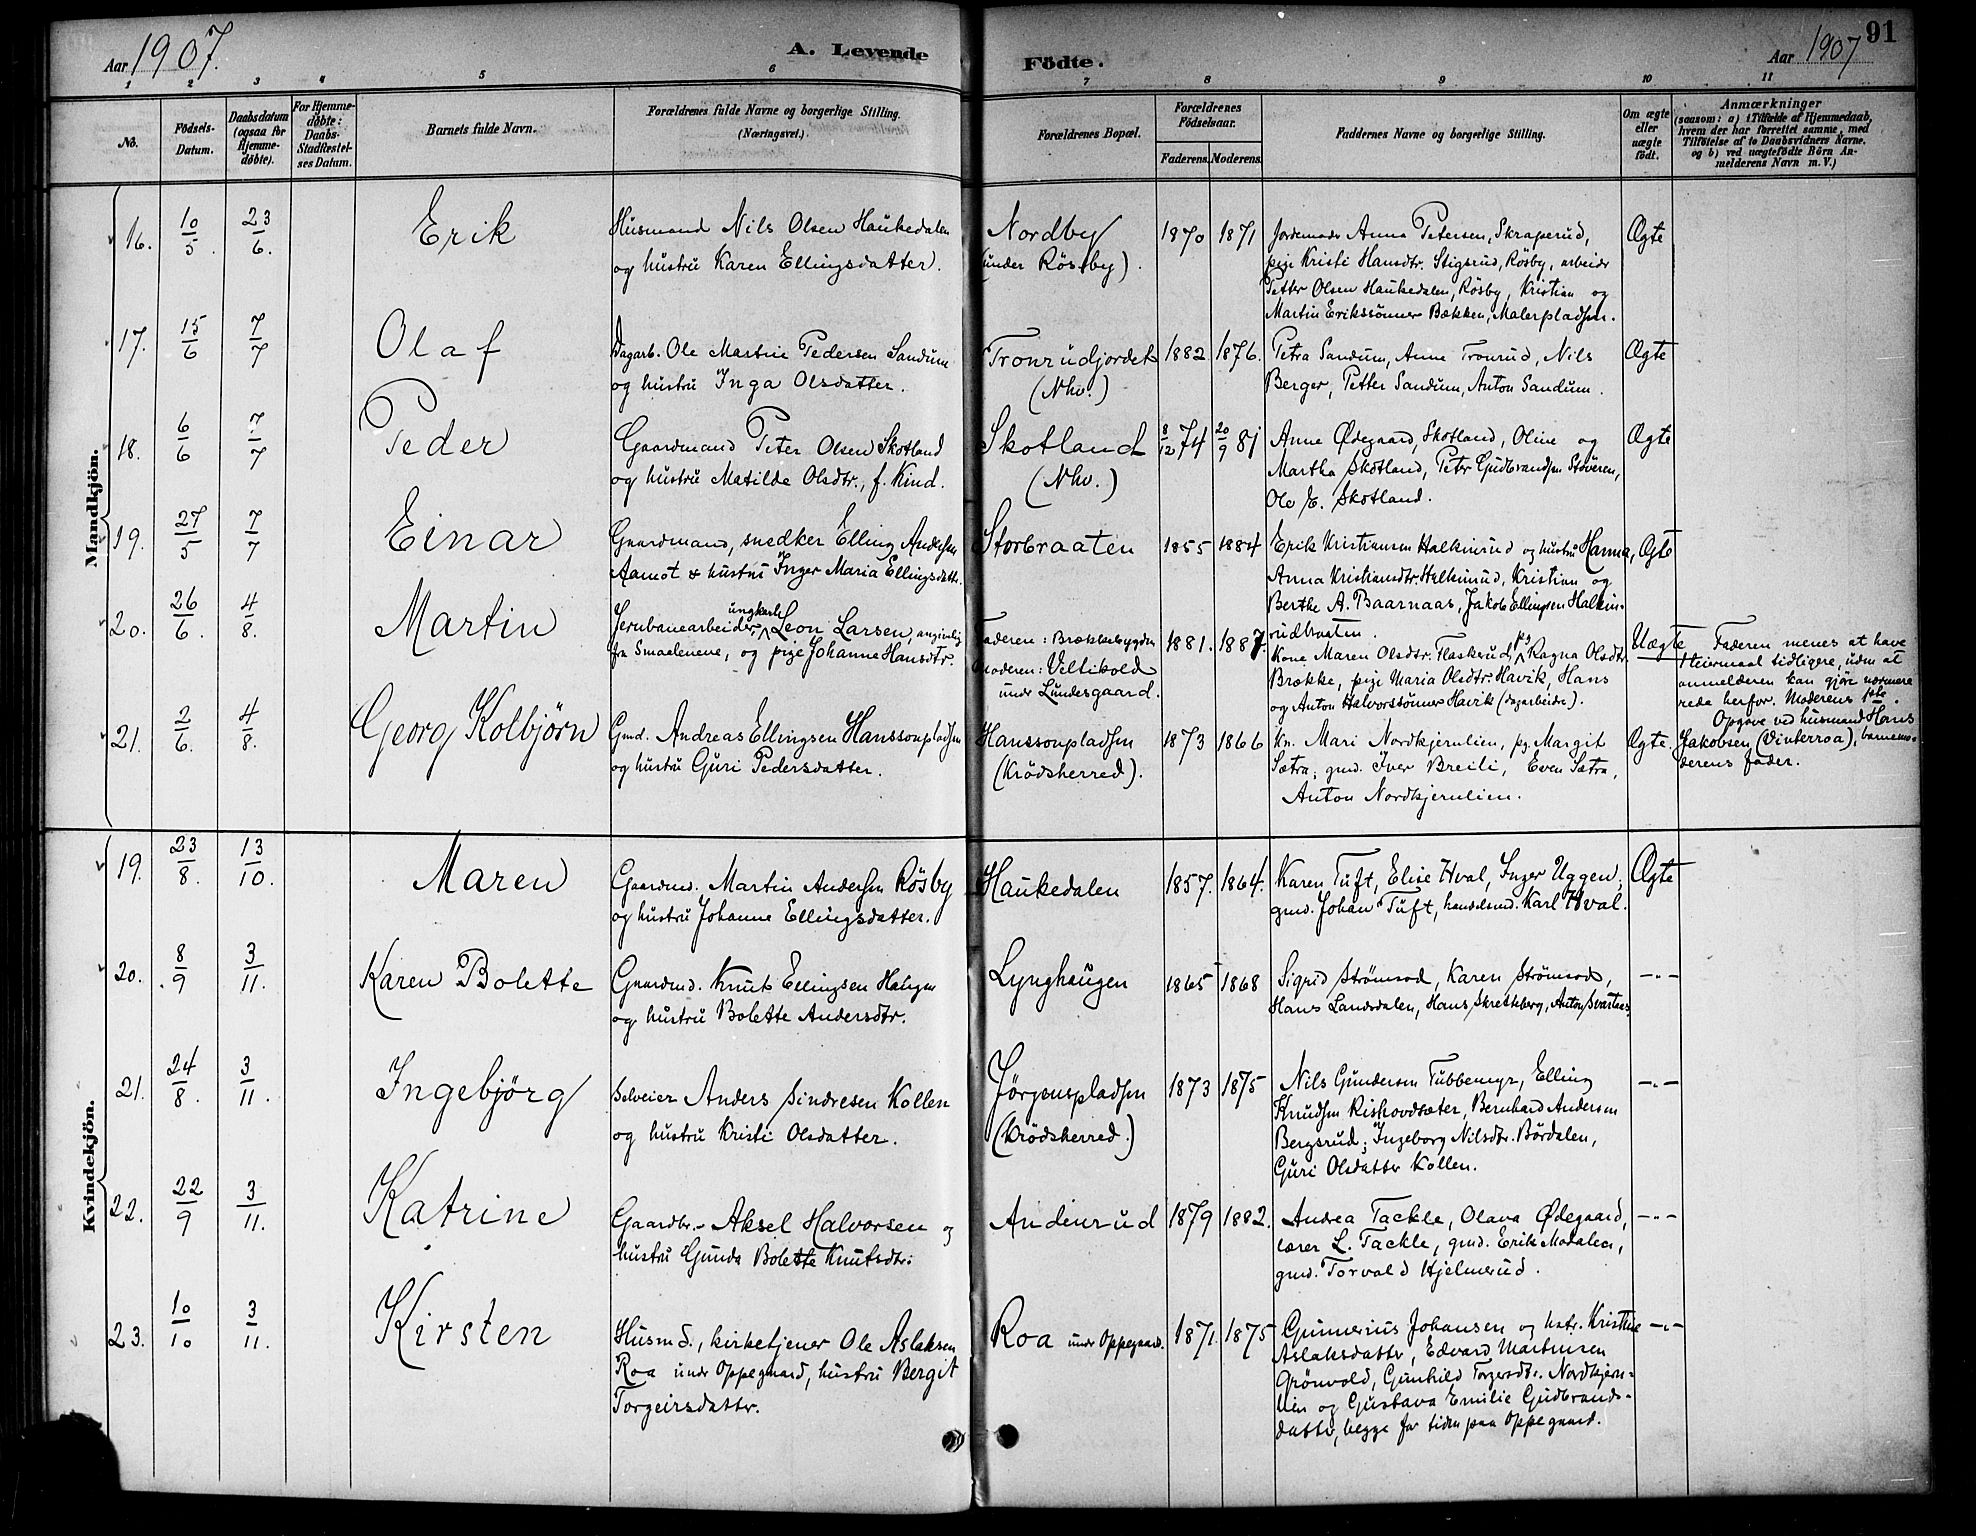 Aar 1907.
A. Levende
Födte.
Aar 1907
91
1 2 3 4 5 6 7 8 9 10 11
No.
Födsels-
Datum.
Daabsdatum
(ogsaa for
Hjemme-
döbte).
For Hjemme-
döbte:
Daabs-
Stadfæstel-
ses Datum.
Barnets fulde Navn.
Forældrenes fulde Navne og borgerlige Stilling.
(Næringsvei.)
Forældrenes Bopæl.
Forældrenes
Födselsaar.
Faderens. Moderens.
Faddernes Navne og borgerlige Stilling.
Om ægte
eller
uægte
födt.
Anmærkninger
(saasom: a) i Tilfælde af Hjemmedaab,
hvem der har forrettet samme, med
Tilföielse af to Daabsvidners Navne,
og b) ved uægtefödte Börn An-
melderens Navn m. V.)
Mandkjön.
16. 10/5 23/6. Erik
Husmand Nils Olsen Haukedalen
og hustru Karen Ellingsdatter.
Nordby
(under Rösby).
1870 1871
Jordemoder Anna Petersen, Skraperud,
pige Kristi Hansdtr. Stigsrud, Rösby, arbeider
Petter Olsen Haukedalen, Rösby, Kristian og
Martin Erikssönner Bækken, Malerpladsen.
Ægte
17. 15/6 7/7 Olaf
Dagarb. Ole Martin Pedersen Sandum
og hustru Inga Olsdatter.
Tronrudjordet
(Nhv.)
1882. 1876.
Petra Sandum, Anne Tronrud, Nils
Berger, Petter Sandum, Anton Sandum.
Ægte
18. 6/6 7/7 Peder
Gaardmand Peter Olsen Skotland
og hustru Matilde Olsdtr., f. Kind.
Skotland
(Nhv.)
8/12 74 20/9 81
Anne Ødegaard, Skotland, Oline og
Martha Skotland, Peter Gudbrandsen Stöveren,
Ole E. Skotland.
Ægte
19. 27/5 7/7 Einar
Gaardmand, snedker Elling Andersen
Aamot & hustru Inger Maria Ellingsdatt.
Storbraaten
1855 1884
Erik Kristiansen Halkinrud og hustru Hanna,
Anna Kristiansdtr. Halkinrud, Kristian og
Berthe A. Baarnaas, Jakob Ellingsen Halkin-
rudbraaten.
Ægte
20. 26/6. 4/8. Martin
Jernbanearbeider, ungkarl Leon Larsen, angivelig
fra Smaalenene, og pige Johanne Hansdtr.
Faderen: Brækkebygden
Moderen: Veltikold
under Lundesgaard.
1881. 1887.
Kone Maren Olsdtr. Flaskerud, pg Ragna Olsdtr.
Brække, pige Maria Olsdtr. Havik, Hans
og Anton Halvorssönner Havik (dagarbeidere).
Uægte
Faderen menes at have
leiermaal tidligere, uden at
anmelderen kan gjöre nærmere
rede herfor. Moderens 1ste.
Opgave ved husmand Hans
Jakobsen (Vinterroa), barnemo-
derens fader.
21. 2/6. 4/8. Georg Kolbjörn
Gmd. Andreas Ellingsen Hanssonpladsen
og hustru Guri Pedersdatter.
Hanssonpladsen
(Krödsherred).
1873 1866
Kn. Mari Nordkjernlien, pg. Margit
Sætra, gmd. Iver Breili, Even Sætra,
Anton Nordkjernlien.
Ægte.
Kvindekjön.
19. 23/8. 13/10. Maren
Gaardmd. Martin Andersen Rösby
og hustru Johanne Ellingsdatter.
Haukedalen
1857. 1864.
Karen Tuft, Elise Hval, Inger Uggen,
gmd. Johan Tuft, handelsmd. Karl Hval.
Ægte
20. 8/9 3/11. Karen Bolette
Gaardmd. Knut Ellingsen Haugen
og hustru Bolette Andersdtr.
Lynghaugen
1865 1868
Sigrid Strömsod, Karen Strömsod,
Hans Landsdalen, Hans Skretteberg, Anton Svartaas
—"—
21. 24/8. 3/11. Ingebjörg
Selveier Anders Sindresen Kollen
og hustru Kristi Olsdatter.
Jörgenspladsen
(Krödsherred.)
1873 1875
Nils Gundersen Tubbemyr, Elling
Knudsen Rishovdsæter, Bernhard Andersen
Bergsrud; Ingeborg Nilsdtr. Bördalen,
Guri Olsdatter Kollen.
—"—
22. 22/9 3/11. Katrine
Gaardbr. Aksel Halvorsen og
hustru Gunda Bolette Knutsdtr.
Andenrud
1879 1882.
Andrea Tackle, Olava Ødegaard,
lærer L. Tackle, gmd. Erik Modalen,
gmd. Torvald Hjelmerud.
—"—
23. 10/10 3/11. Kirsten
Husmd., kirketjener Ole Aslaksen
Roa under Oppegaard, hustru Bergit
Torgeirsdatter.
Roa under Oppegaard.
1871. 1875
Gunnerius Johansen og hstr. Kristine
Aslaksdatter, Edvard Martinsen
Grönvold, Gunhild Torgersdtr. Nordkjern-
lien og Gustava Emilie Gudbrands-
datter, begge for tiden paa Oppegaard.
—"—